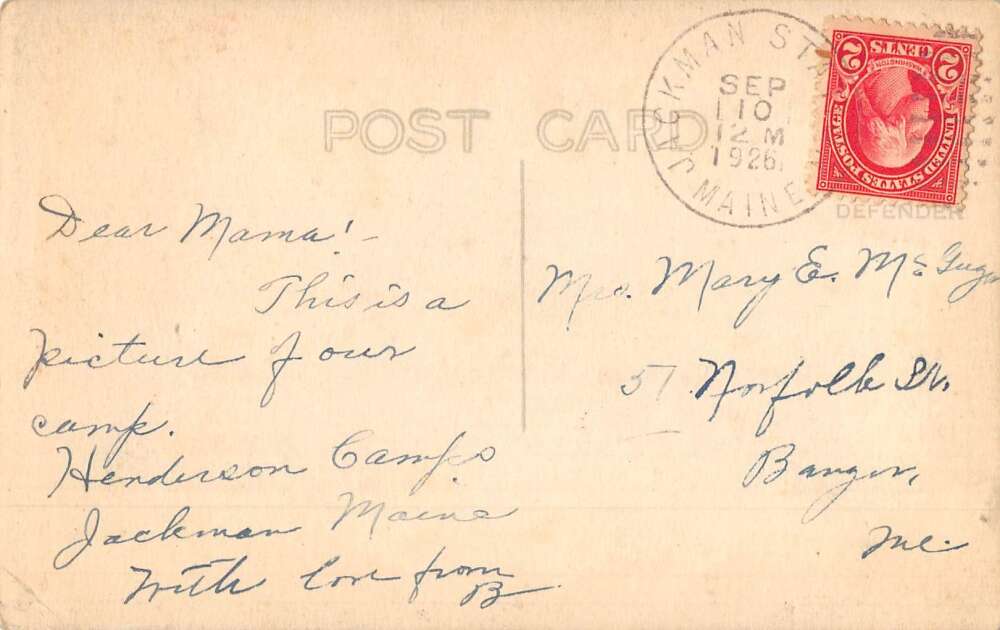 POST CARD
JACKMAN STA
MAINE
SEP
10
12 M
1926
2 CENTS 2
WASHINGTON
UNITED STATES POSTAGE
DEFENDER
Dear Mama! -
This is a
picture of our
camp.
Henderson Camps
Jackman Maine
With love from
B
Mrs. Mary E.
57 Norfolk St.
Bangor,
Me.